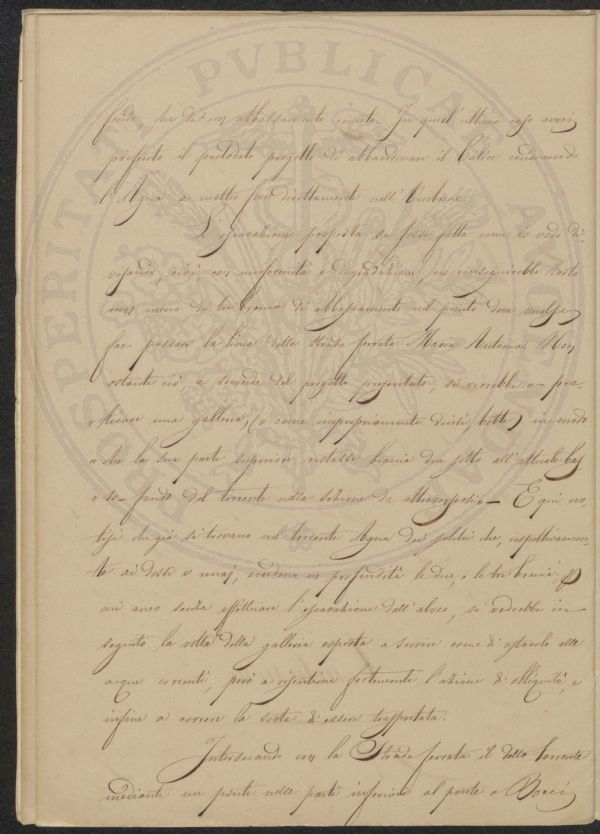 fondo, che dà un abbassamento In quest'ultimo caso avrei
preferito il progetto di abbandonare il Calice conducendo
l'Agna a metter foce direttamente nell'Ombrone.
L'escavazione proposta se fosse fatta come io vado di-
visando, cioè, con uniformità e degradazione, ne conseguirebbe tosto
non meno di tre braccia di abbassamento nel punto dove vuolsi
far passare la linea della Strada ferrata Maria Antonia. Non
ostante ciò, a seconda del progetto presentato, si verrebbe a pra-
"ticare una galleria, (o come impropriamente dicesi botte) in modo
" che la sua parte superiore restasse braccia due sotto all'attuale bas
" so-fondo del torrente nella sezione da attraversarsi — E qui no-
tisi che già si trovano nel torrente Agna dei che, respettivamen-
te ai dossi e renai, eccedono in profondità le due, e le tre braccia, p
cui anco senza effettuare l'escavazione dell'alveo, si vedrebbe in
seguito la volta della galleria esposta a servire come di ostacolo alle
acque correnti, però a risentirne fortemente l'azione di obliquità, e
infine a correre la sorte di essere trasportata.
Intersecando con la Strada ferrata il detto torrente
mediante un ponte nelle parti inferiori al ponte a Bocci
PROSPERITATI PVBLICAE